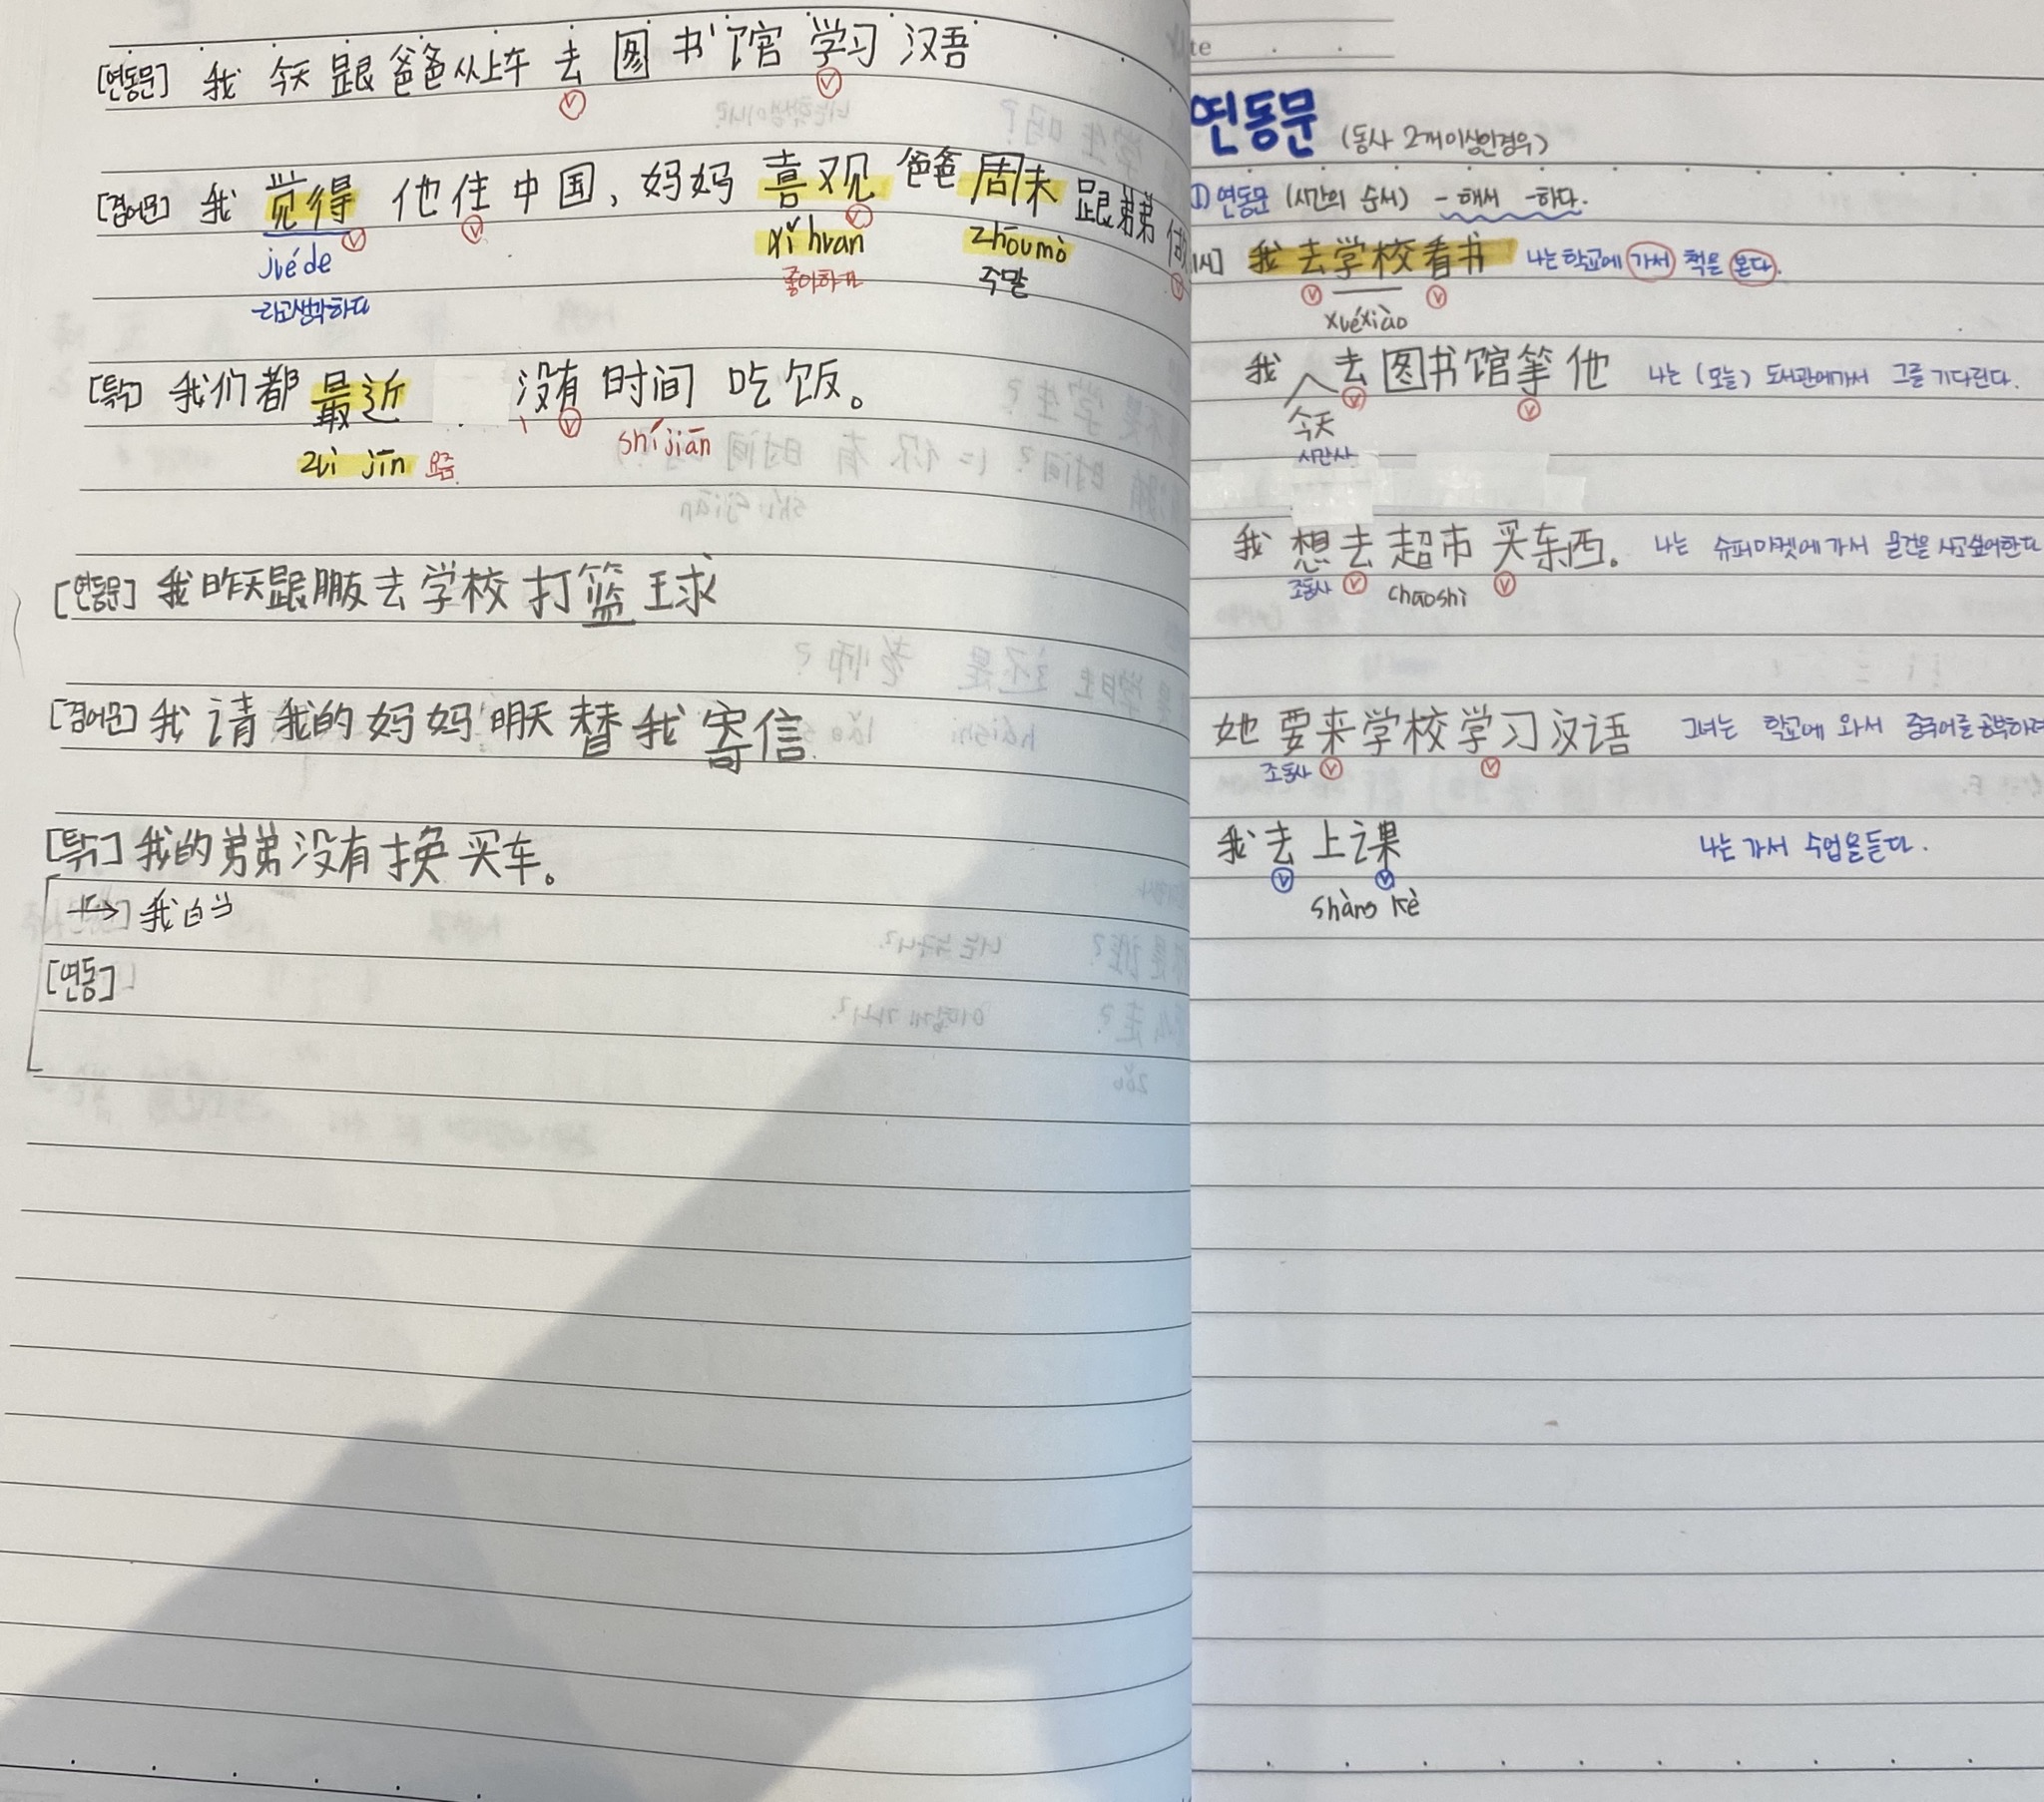 [연동문] 我 今天 跟 爸爸 从上车 去 图 书 馆 学习 汉语
[겸어문] 我 觉得 他 住 中 国, 妈妈 喜 观 爸爸 周末 跟 弟弟
juéde
xǐ huan
zhōumò
-라고생각하다
좋아하다
주말
[특수] 我们都 最近 没有 时间 吃 饭。
zuì jīn 요즘
shíjiān
[연동문] 我 昨天跟朋友 去 学校 打 篮 球
[겸어문] 我 请 我的 妈妈 明天 替 我 寄信
[특수] 我的 弟弟 没有 换 买车。
[연동]
연동문 (동사 2개이상인경우)
1) 연동문 (시간의 순서) -해서 -하다.
我 去 学校 看书 나는 학교에 가서 책을 본다.
xuéxiào
我 去 图书馆 等 他 나는 (오늘) 도서관에가서 그를 기다린다.
今天
시간사
我 想 去 超市 买东西。 나는 슈퍼마켓에 가서 물건을 사고싶어한다
조동사
chaoshì
她 要来 学校 学习 汉语 그녀는 학교에 와서 중국어를 공부하려
조동사
我 去 上课 나는 가서 수업을듣다.
shàng kè